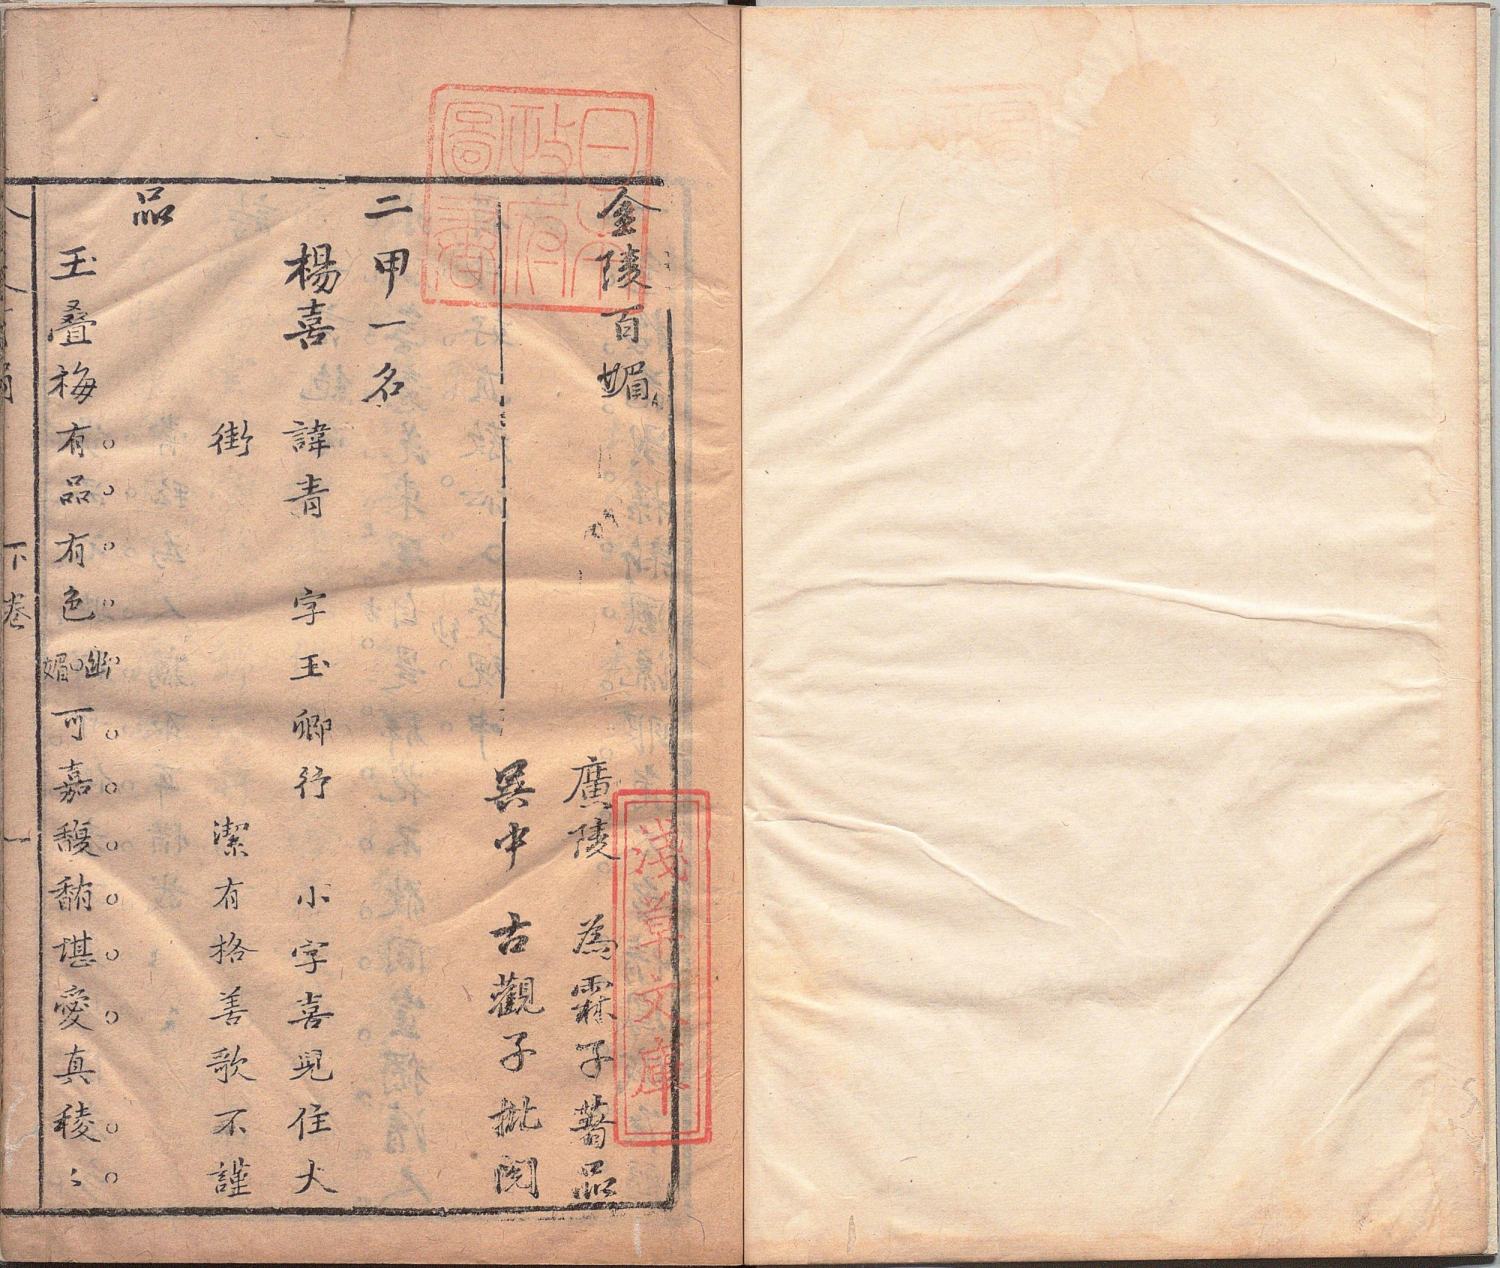 金陵百媚
廣陵 為霖子著品
吳中 古觀子批閱
二甲一名
楊喜 諱青 字玉卿行 小字喜兒住大
街 潔有格善歌不謹
品
玉疊梅有品有色幽媚可嘉馥馥堪愛真稜〻
下卷 一
日本政府圖書
淺草文庫